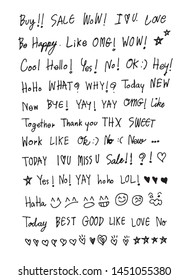 Buy!! SALE WOW! I♡U. LOVE
Be Happy. Like OMG! WOW! ☆
Cool Hello! Yes! No! OK :) Hey!
HoHo WHAT? WHY!? Today NEW
New BYE! YAY! YAY OMG! Like
Together Thank you THX SWEET
Work LIKE OK:) No :< New ...
TODAY I♡U MISS U Sale!! ?! ♡
★ Yes! No! YAY hoho LOL! ♥ ♡
HaHa
Today BEST GOOD LIKE LOVE No
shutterstock.com · 1451055380